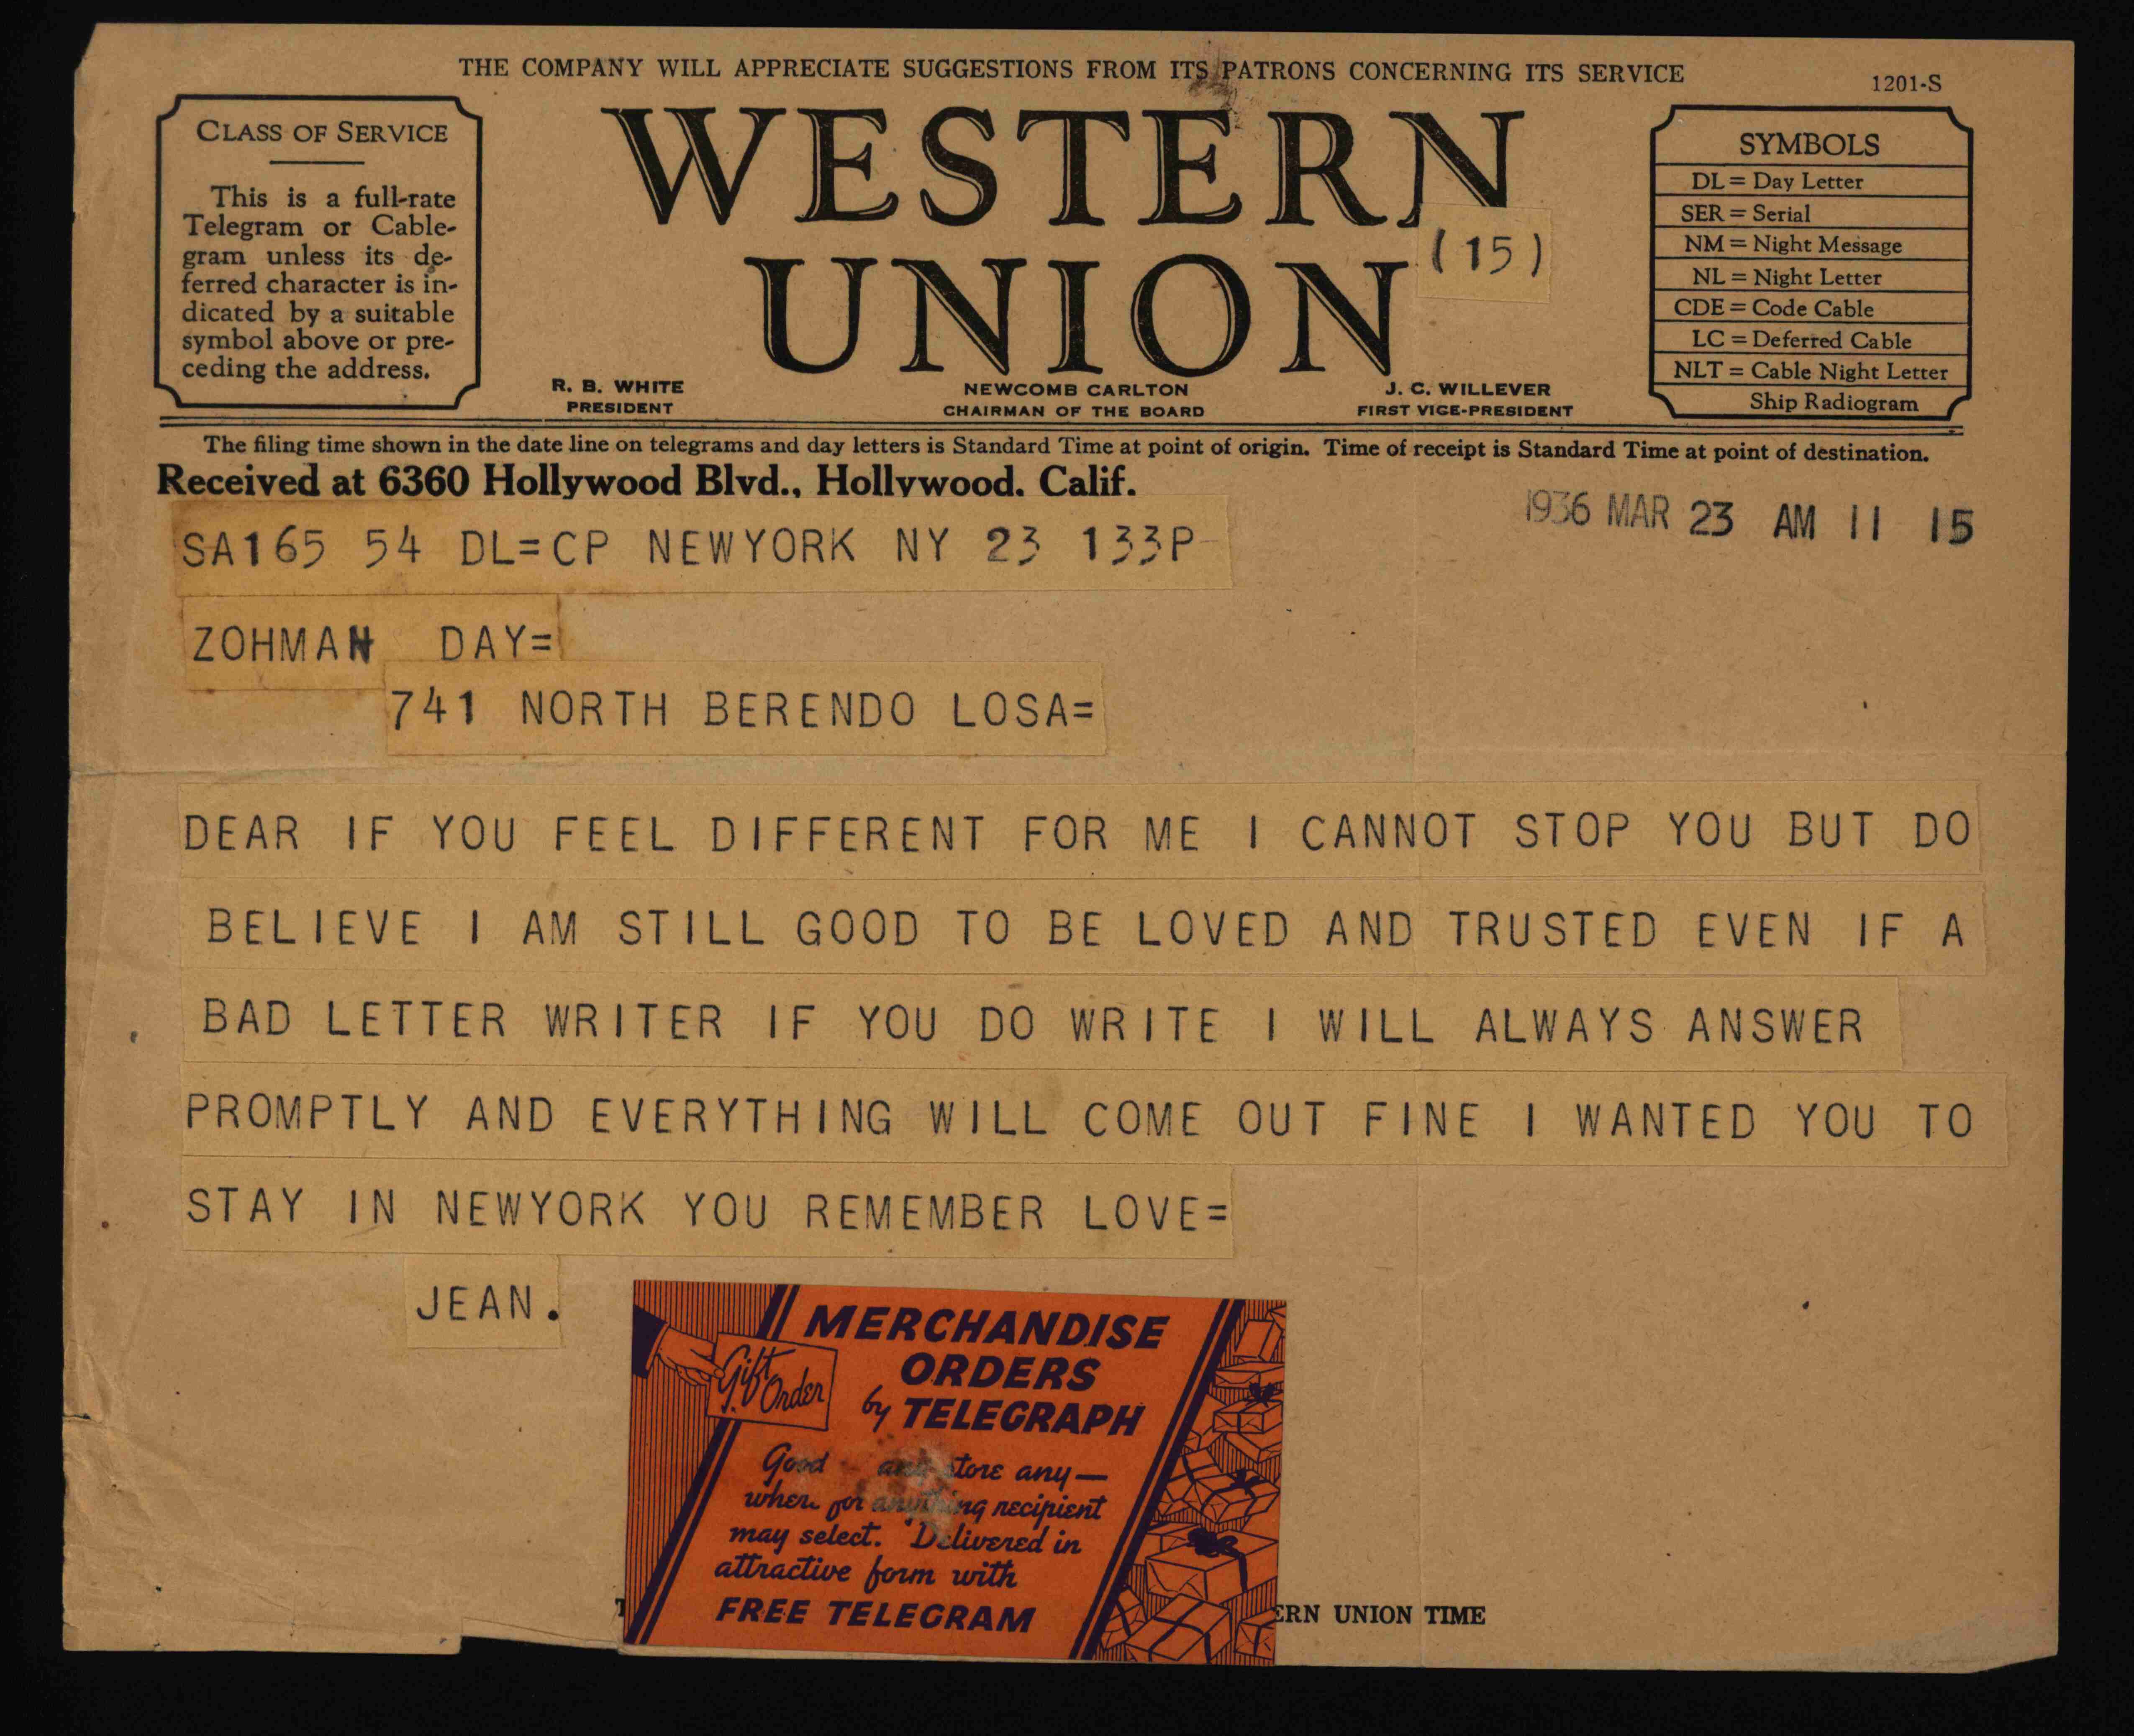 THE COMPANY WILL APPRECIATE SUGGESTIONS FROM ITS PATRONS CONCERNING ITS SERVICE
1201-S
CLASS OF SERVICE
This is a full-rate
Telegram or Cable-
gram unless its de-
ferred character is in-
dicated by a suitable
symbol above or pre-
ceding the address.
WESTERN
UNION
(15)
R. B. WHITE
PRESIDENT
NEWCOMB CARLTON
CHAIRMAN OF THE BOARD
J. C. WILLEVER
FIRST VICE-PRESIDENT
SYMBOLS
DL = Day Letter
SER = Serial
NM = Night Message
NL = Night Letter
CDE = Code Cable
LC = Deferred Cable
NLT = Cable Night Letter
Ship Radiogram
The filing time shown in the date line on telegrams and day letters is Standard Time at point of origin. Time of receipt is Standard Time at point of destination.
Received at 6360 Hollywood Blvd., Hollywood. Calif.
1936 MAR 23 AM 11 15
SA165 54 DL=CP NEWYORK NY 23 133P
ZOHMAH DAY=
741 NORTH BERENDO LOSA=
DEAR IF YOU FEEL DIFFERENT FOR ME I CANNOT STOP YOU BUT DO
BELIEVE I AM STILL GOOD TO BE LOVED AND TRUSTED EVEN IF A
BAD LETTER WRITER IF YOU DO WRITE I WILL ALWAYS ANSWER
PROMPTLY AND EVERYTHING WILL COME OUT FINE I WANTED YOU TO
STAY IN NEWYORK YOU REMEMBER LOVE=
JEAN.
Gift Order
MERCHANDISE
ORDERS
by TELEGRAPH
Good any store any-
where for anything recipient
may select. Delivered in
attractive form with
FREE TELEGRAM
ERN UNION TIME